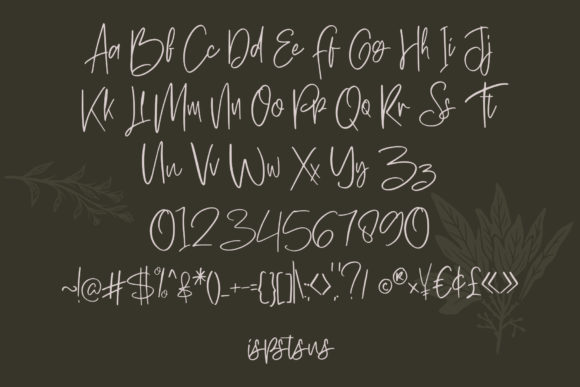 Aa Bb Cc Dd Ee Ff Gg Hh Ii Jj
Kk Ll Mm Nn Oo Pp Qq Rr Ss Tt
Uu Vv Ww Xx Yy Zz
01234567890
~!@#$%^&*()_+-={}[]|\:;<>",'?/ ©®×¥€¢£«»